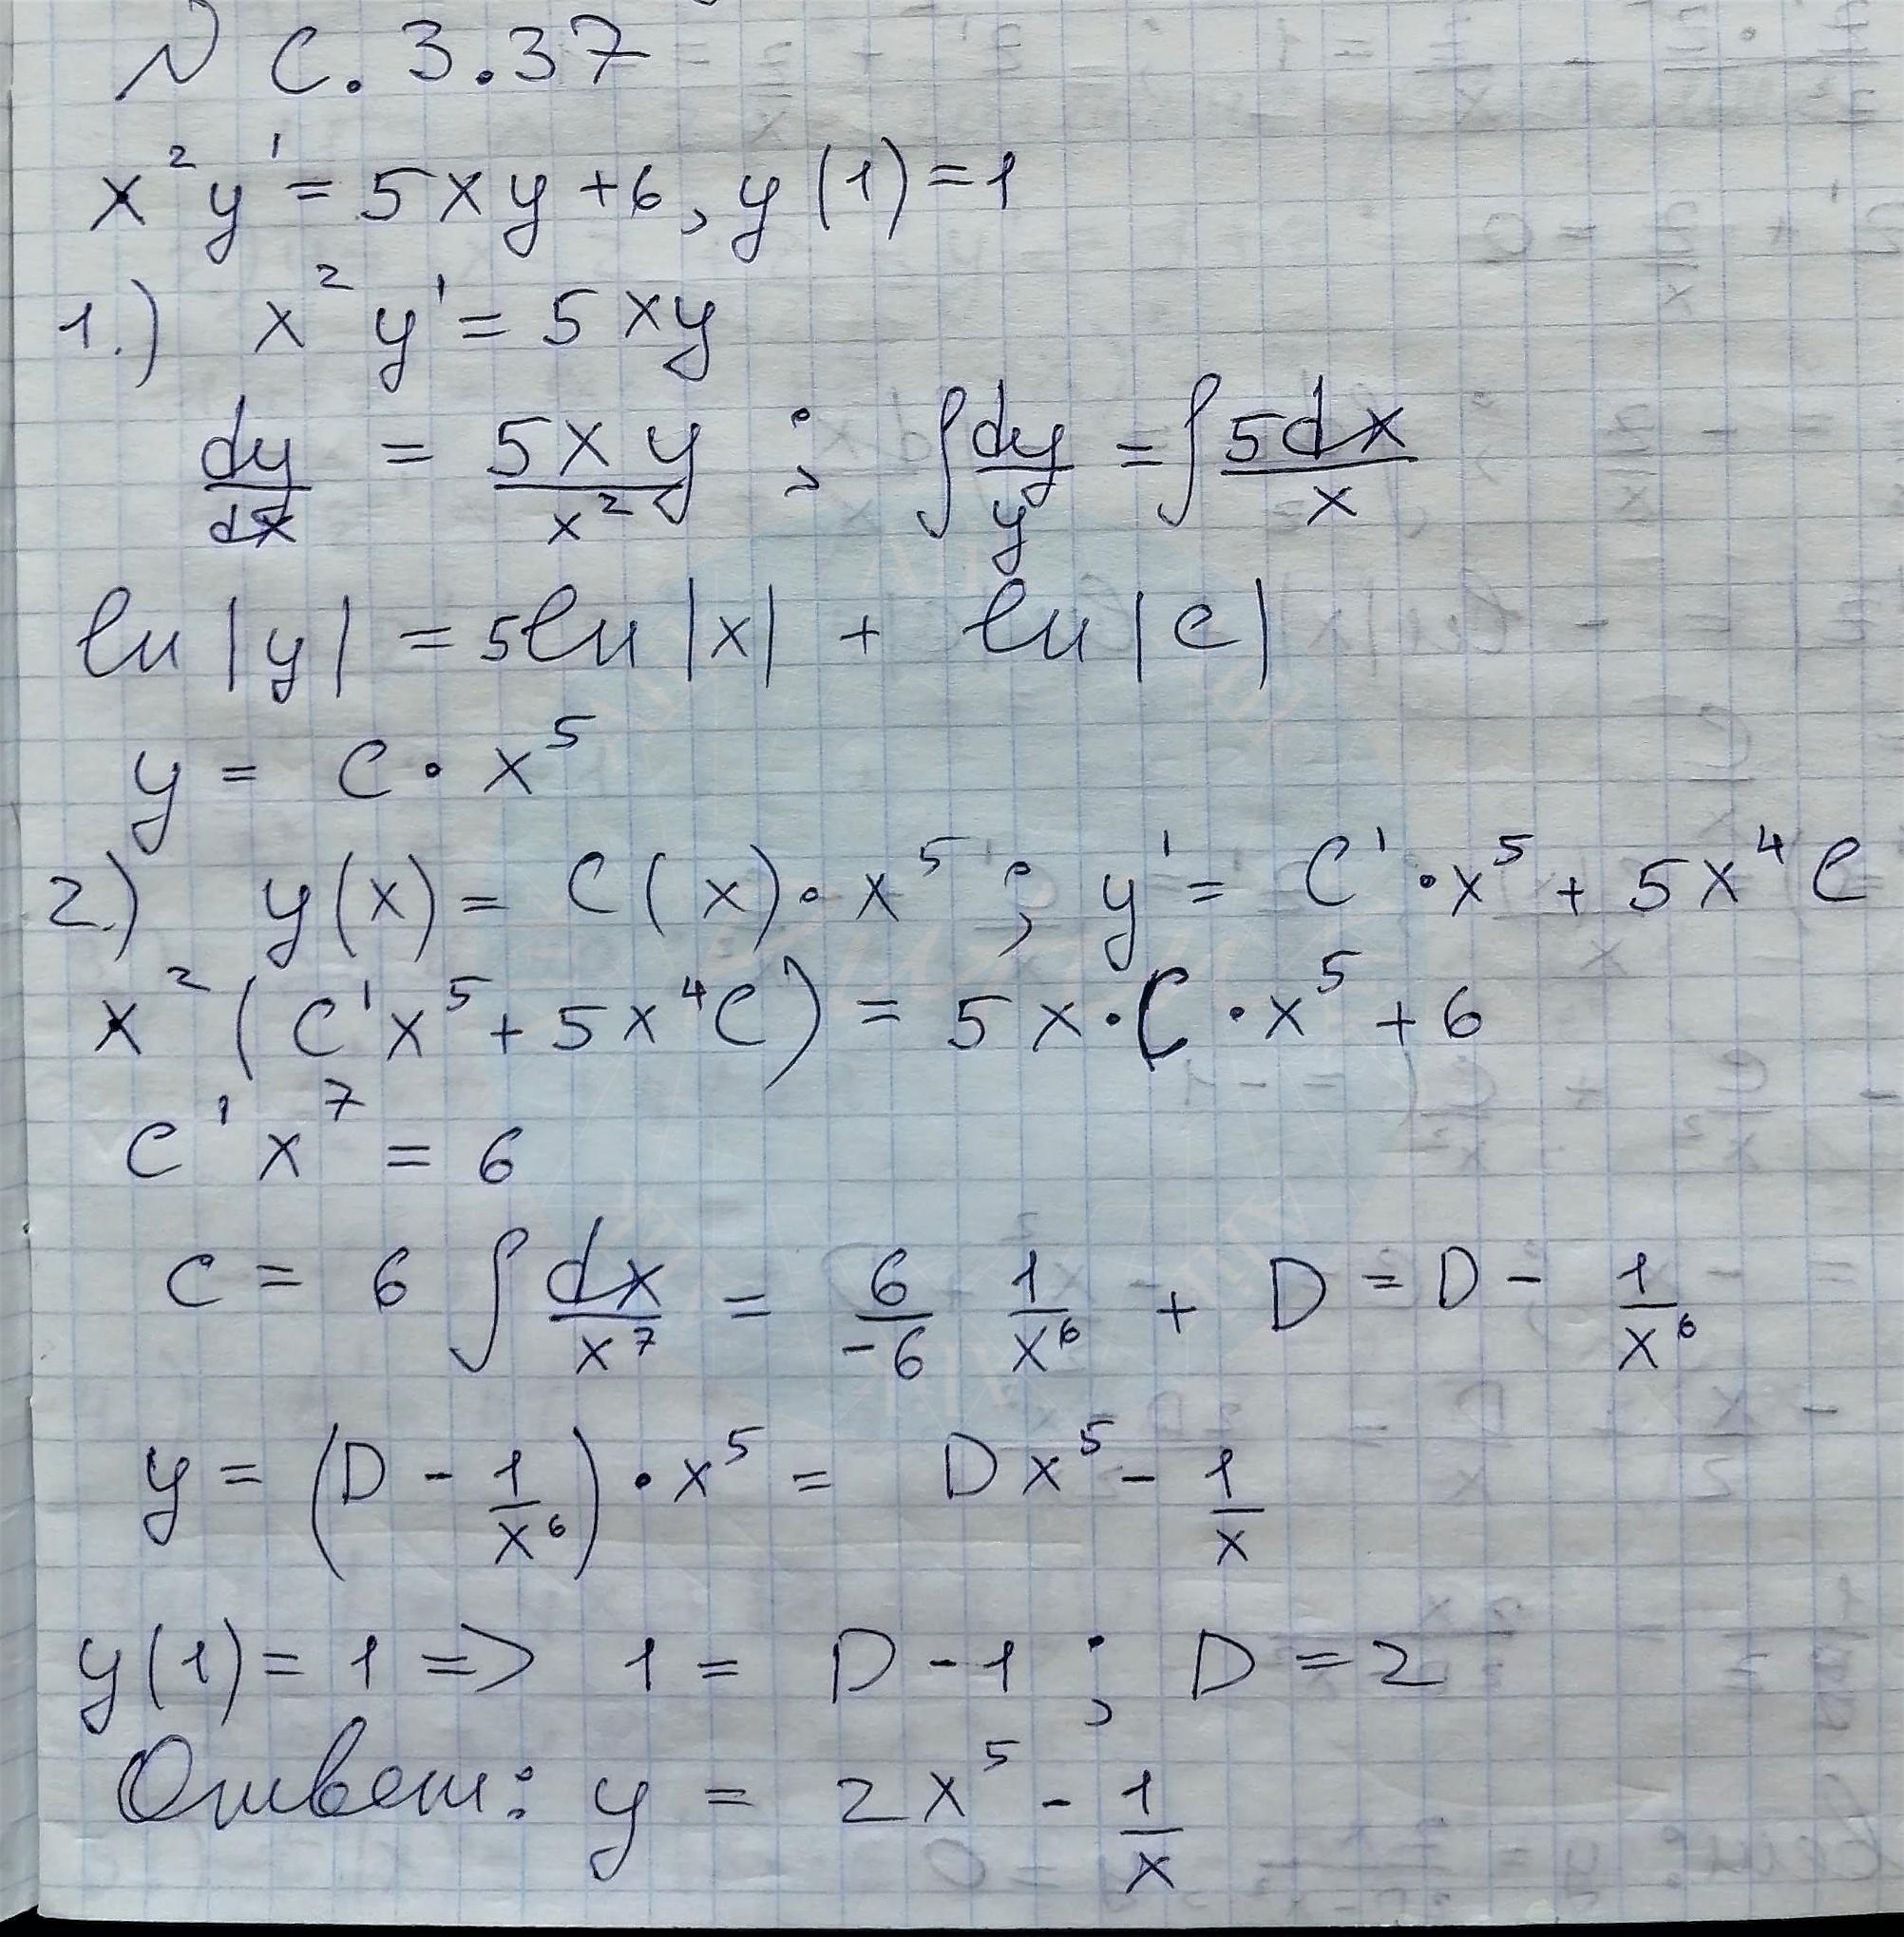 N С. 3.37
x² y' = 5xy + 6, y(1) = 1
1.) x² y' = 5xy
dy/dx = 5xy/x² ; ∫ dy/y = ∫ 5dx/x
ln|y| = 5ln|x| + ln|C|
y = C · x⁵
2.) y(x) = C(x) · x⁵ ; y' = C' · x⁵ + 5x⁴C
x² (C'x⁵ + 5x⁴C) = 5x · C · x⁵ + 6
C'x⁷ = 6
C = 6 ∫ dx/x⁷ = 6/-6 1/x⁶ + D = D - 1/x⁶
y = (D - 1/x⁶) · x⁵ = Dx⁵ - 1/x
y(1) = 1 => 1 = D - 1 ; D = 2
Ответ: y = 2x⁵ - 1/x